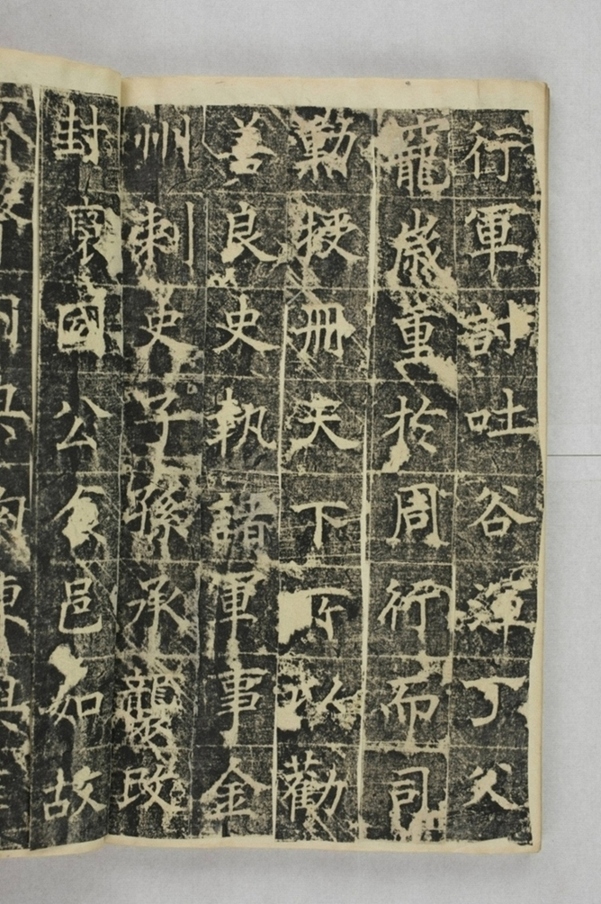 行軍討吐谷渾丁父
寵歲重於周行而司
勳授冊天下所以勸
善良史執諸軍事金
州刺史子孫承襲改
封襃國公食邑如故